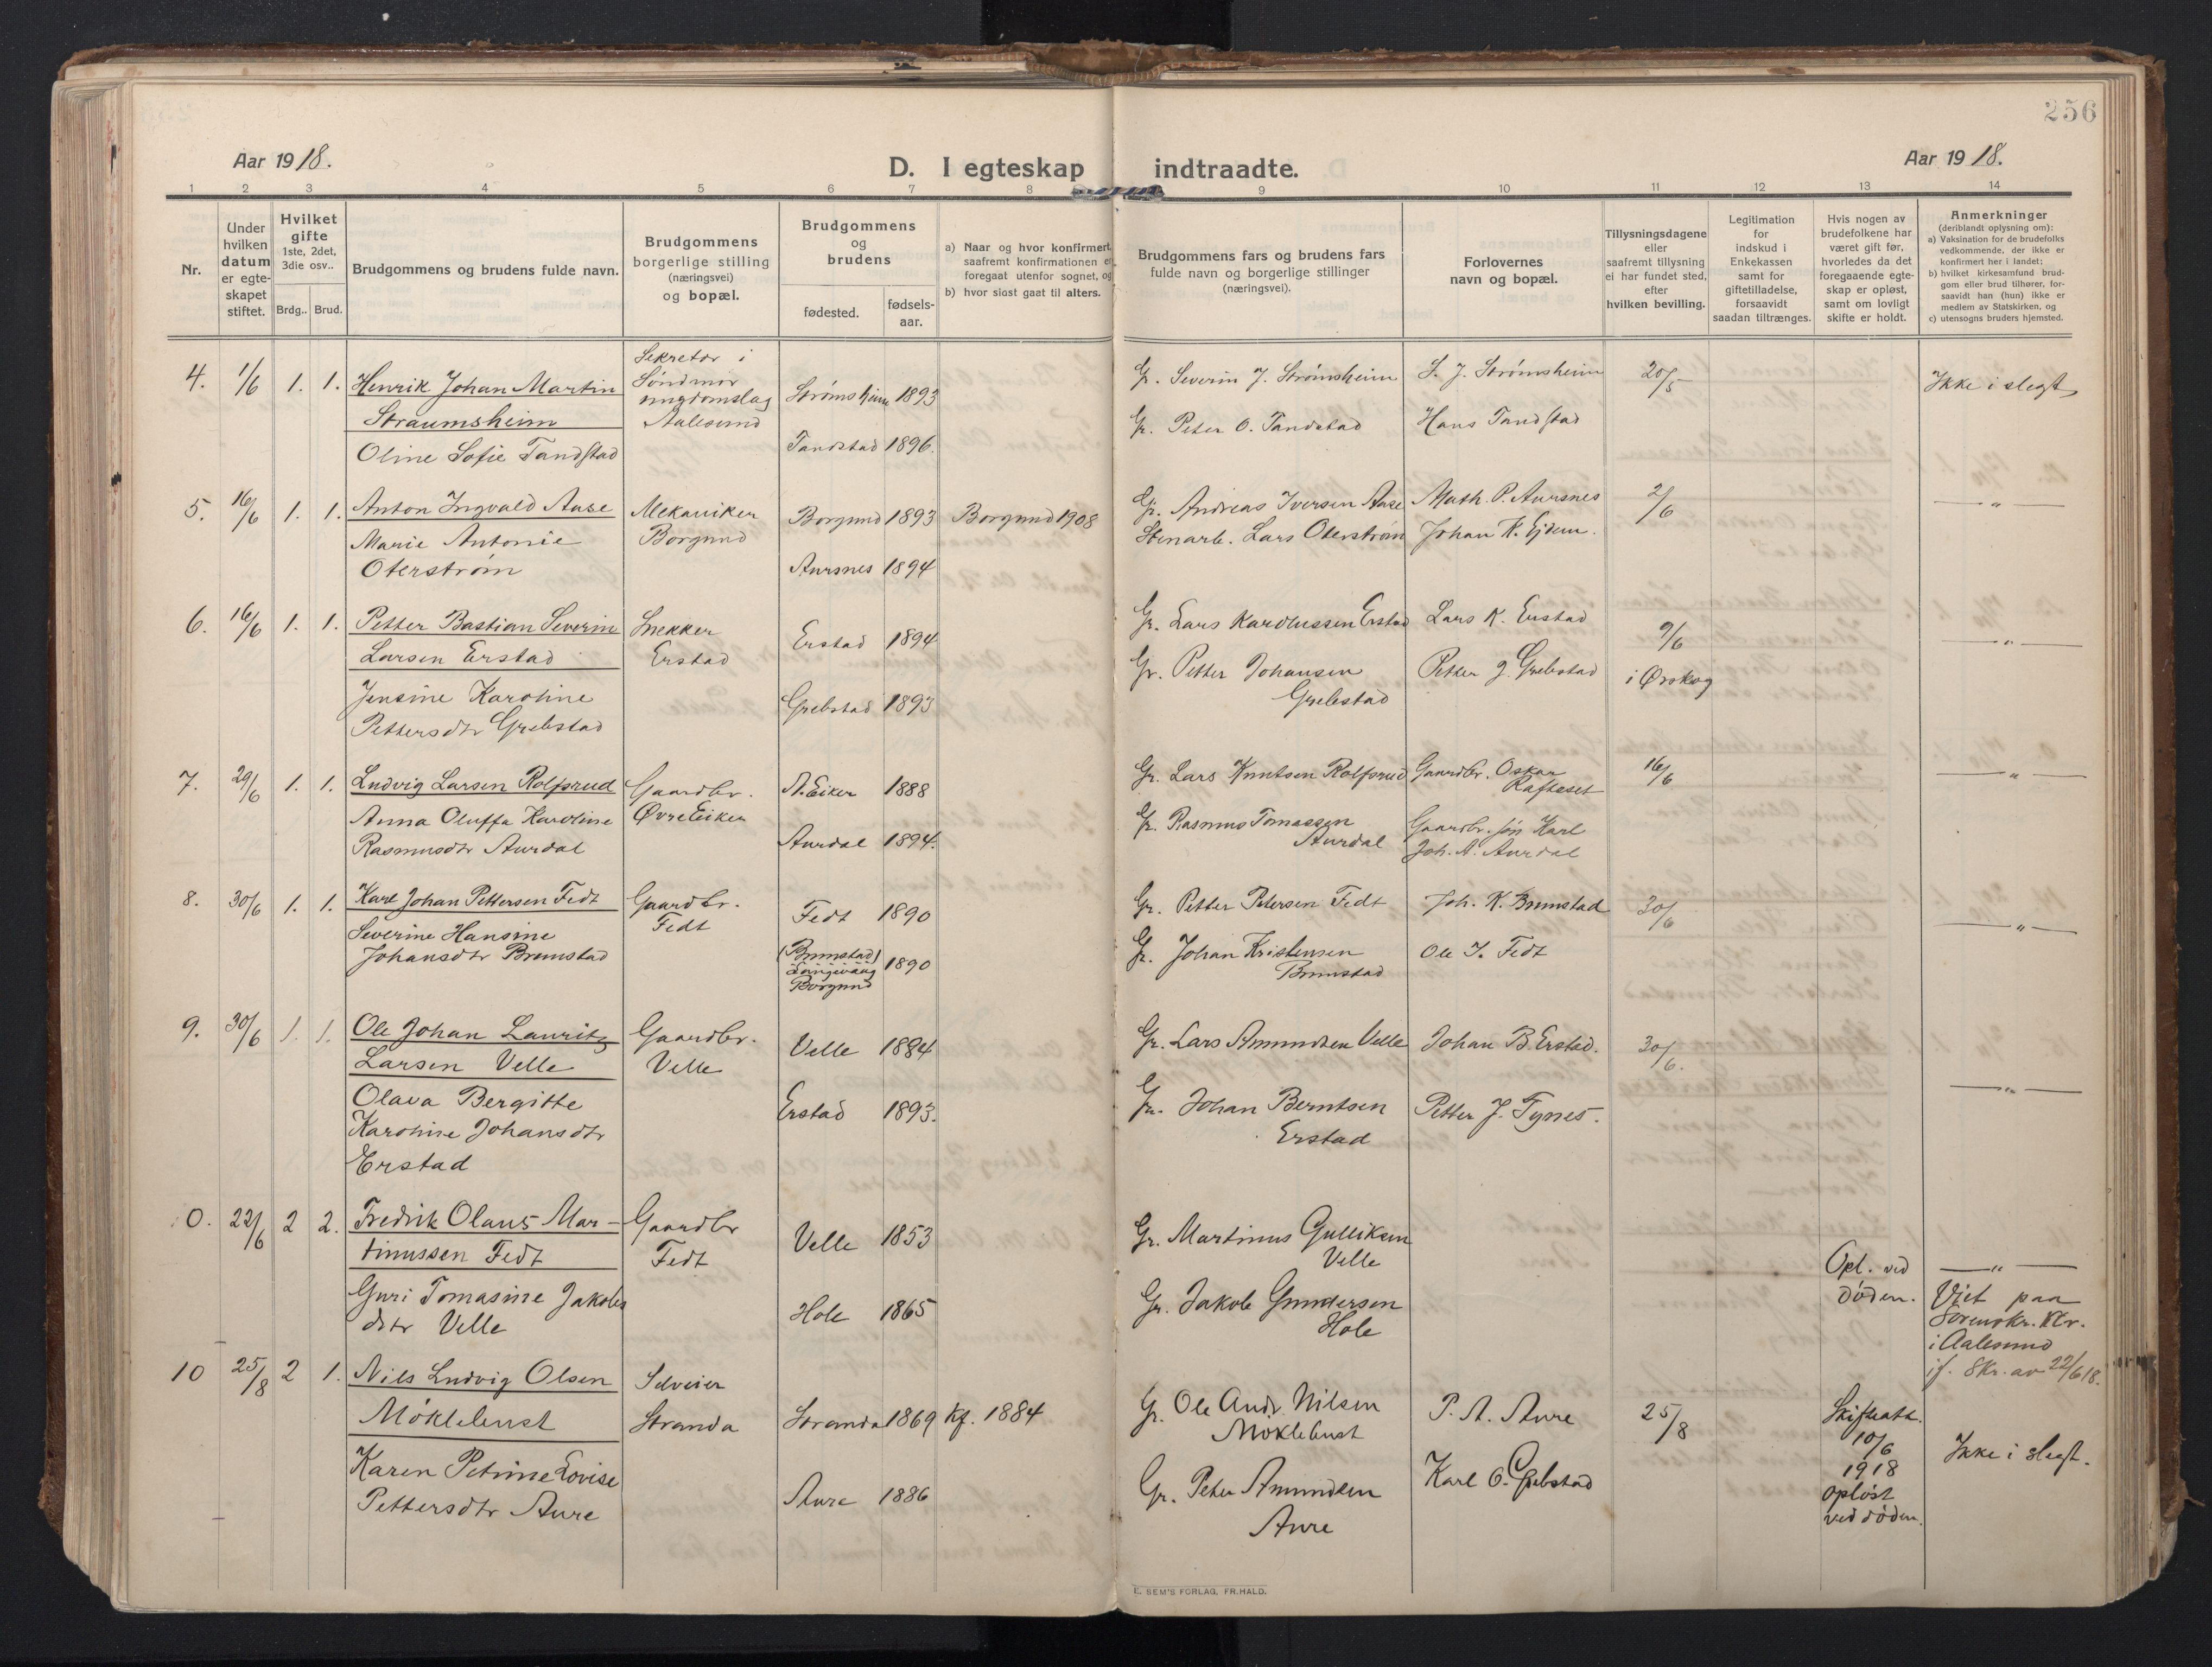 256
Aar 1918.
D. I egteskap indtraadte.
Aar 1918.
1 2 3 4 5 6 7 8 9 10 11 12 13 14
Nr.
Under hvilken datum er egteskapet stiftet.
Hvilket gifte 1ste, 2det, 3die osv..
Brdg.. Brud.
Brudgommens og brudens fulde navn.
Brudgommens borgerlige stilling (næringsvei) og bopæl.
Brudgommens og brudens
fødested.
fødsels-aar.
a) Naar og hvor konfirmert,
saafremt konfirmationen er
foregaat utenfor sognet, og
b) hvor sidst gaat til alters.
Brudgommens fars og brudens fars
fulde navn og borgerlige stillinger
(næringsvei).
Forlovernes
navn og bopæl.
Tillysningsdagene
eller
saafremt tillysning
ei har fundet sted,
efter
hvilken bevilling.
Legitimation
for
indskud i
Enkekassen
samt for
giftetilladelse,
forsaavidt
saadan tiltrænges.
Hvis nogen av
brudefolkene har
været gift før,
hvorledes da det
foregaaende egte-
skap er opløst,
samt om lovligt
skifte er holdt.
Anmerkninger
(deriblandt oplysning om):
a) Vaksination for de brudefolks
vedkommende, der ikke er
konfirmert her i landet;
b) hvilket kirkesamfund brud-
gom eller brud tilhører, for-
saavidt han (hun) ikke er
medlem av Statskirken, og
c) utensogns bruders hjemsted.
4. 1/6 1. 1. Henrik Johan Martin
Straumsheim
Oline Sofie Tandstad
Sekretær i
Søndmør
ungdomslag
Aalesund
Strømsheim 1893
Tandstad 1896.
Gr. Severin J. Strømsheim
Gr. Peter O. Tandstad
S. J. Strømsheim
Hans Tandstad
20/5
Ikke i slegt
5. 16/6 1. 1. Anton Ingvald Aase
Marie Antonie
Oterstrøm
Mekaniker
Borgund
Borgund 1893 Borgund 1908
Aursnes 1894
Gr. Andreas Iversen Aase
Stenarb. Lars Oterstrøm
Math. P. Aursnes
Johan K. Ejdem.
2/6
— „ —
6. 16/6 1. 1. Petter Bastian Severin
Larsen Erstad
Jensine Karoline
Pettersdtr Grebstad
Snekker
Erstad
Erstad 1894
Grebstad 1893
Gr. Lars Karolussen Erstad
Gr. Petter Johansen
Grebstad
Lars K. Erstad
Petter J. Grebstad
9/6
i Ørskog
— „ —
7. 29/6 1. 1. Ludvig Larsen Rolfsrud
Anna Oluffa Karoline
Rasmusdtr Aurdal
Gaardbr.
Øvre Eiker
N. Eiker 1888
Aurdal 1894.
Gr. Lars Knutsen Rolfsrud
Gr. Rasmus Tomassen
Aurdal
Gaardbr. Oskar
Rafteset
Gaardbr. søn Karl
Joh. A. Aurdal
16/6
— „ —
8. 30/6 1. 1. Karl Johan Pettersen Fedt
Severine Hansine
Johansdtr Brunstad
Gaardbr.
Fedt
Fedt 1890
(Brunstad)
Langevaag
Borgund
1890
Gr. Petter Petersen Fedt
Gr. Johan Kristensen
Brunstad
Joh. K. Brunstad
Ole J. Fedt
30/6
— „ —
9. 30/6 1. 1. Ole Johan Lauritz
Larsen Velle
Olava Bergitte
Karoline Johansdtr
Erstad
Gaardbr.
Velle
Velle 1884
Erstad 1893.
Gr. Lars Amundsen Velle
Gr. Johan Berntsen
Erstad
Johan B. Erstad.
Petter J. Tynes.
30/6.
— „ —
0. 22/6 2 2. Fredrik Olaus Mar-
tinussen Fedt
Guri Tomasine Jakobs
dtr Velle
Gaardbr
Fedt
Velle 1853
Hole 1865
Gr. Martinus Gulliksen
Velle
Gr. Jakob Gundersen
Hole
Opl. ved
døden.
— „ —
Viet paa
Sorenskr. Ktr.
i Aalesund
jf. Skr. av 22/6 18.
10 25/8 2 1. Nils Ludvig Olsen
Møklebust
Karen Petrine Lovise
Pettersdtr Aure
Selveier
Stranda
Stranda 1869 Kf. 1884
Aure 1886
Gr. Ole Andr. Nilsen
Møklebust
Gr. Peter Amundsen
Aure
P. A. Aure
Karl O. Grebstad
25/8
Skifteatt.
10/6
1918
opløst
ved døden.
Ikke i slegt.
E. SEM'S FORLAG, FR.HALD.